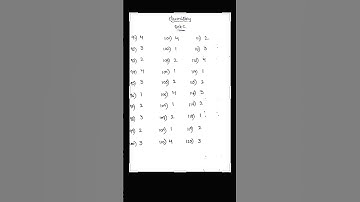 Chemistry
91) 4 101) 4 111) 2
92) 3 102) 1 112) 3
93) 2 103) 2 113) 4
94) 4 104) 1 114) 1
95) 3 105) 2 115) 2
96) 1 106) 4 116) 3
97) 2 107) 1 117) 2
98) 3 108) 2 118) 1
99) 2 109) 1 119) 2
100) 3 110) 4 120) 3